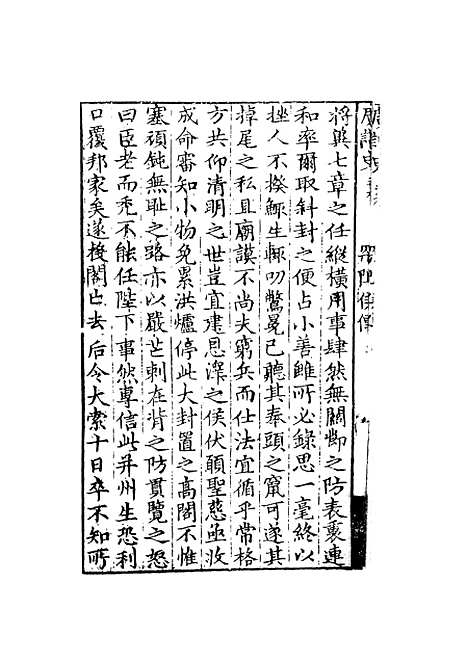 將與七章之任縱橫用事肆然無關鄉之防表裏連
和率爾取斜封之便占小善雖所必錄思一毫終以
挫人不揆鯫生輒叨驚冕已聽其奉頭之竄可遂其
掉尾之私且廟謨不尚夫窮兵而仕法宜循乎常格
方共仰清明之世豈宜建恩澤之侯伏願聖慈亟收
成命審知小物免累洪爐停此大封置之高閣不惟
塞頑鈍無恥之路亦以嚴芒刺在背之防貫覽之怒
曰臣老而禿不能任陛下事然專信此并州生恐利
口覆邦家矣遂投閣亡去后今大索十日卒不知所